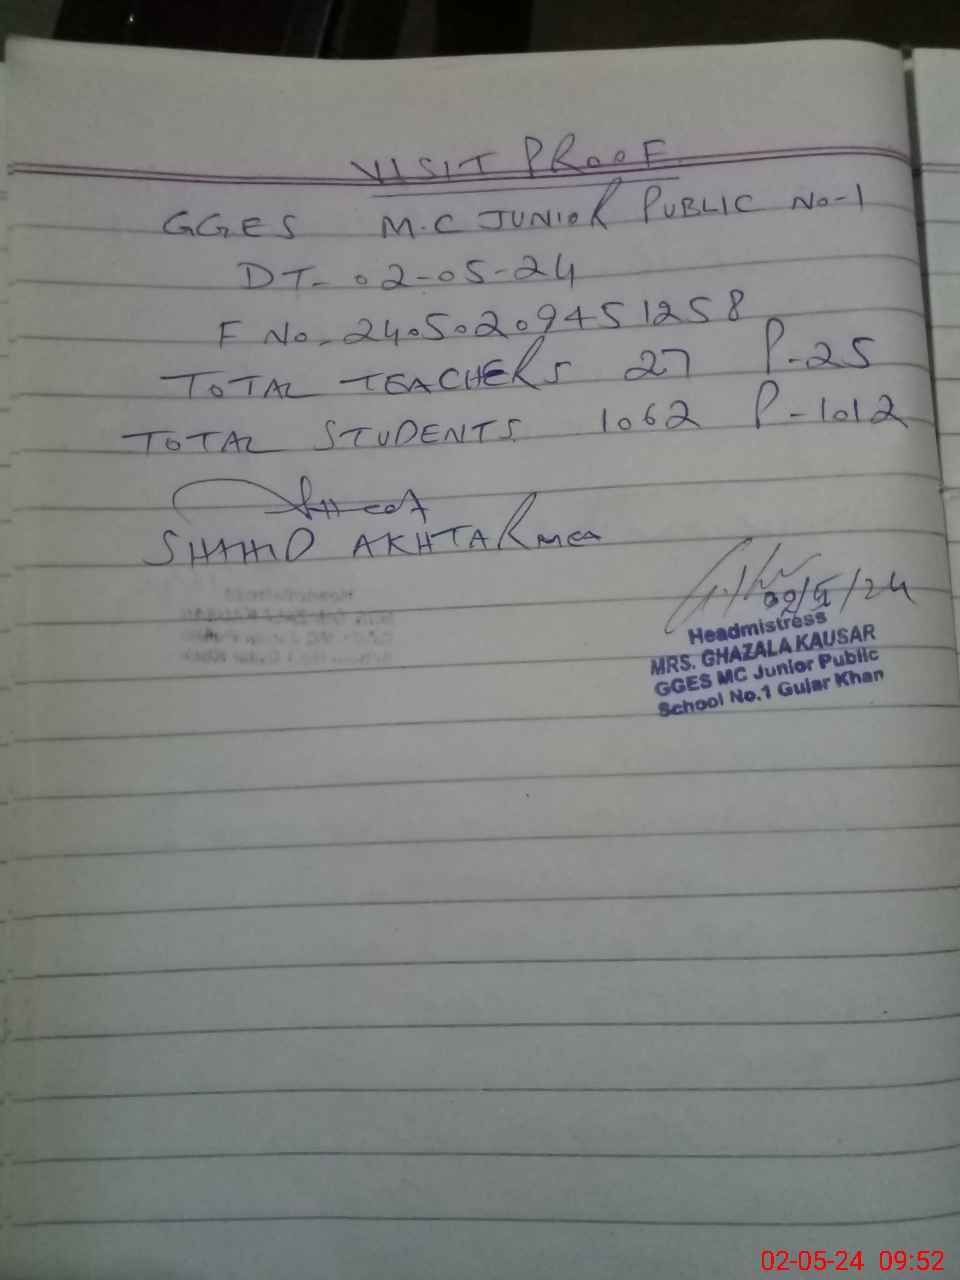 VISIT PROOF
GGES M.C JUNIOR PUBLIC No-1
DT- 02-05-24
F No- 24050209451258
TOTAL TEACHERS 27 P-25
TOTAL STUDENTS 1062 P-1012
SHAHID AKHTAR MEA
02/5/24
Headmistress
MRS. GHAZALA KAUSAR
GGES MC Junior Public
School No.1 Gujar Khan
02-05-24 09:52